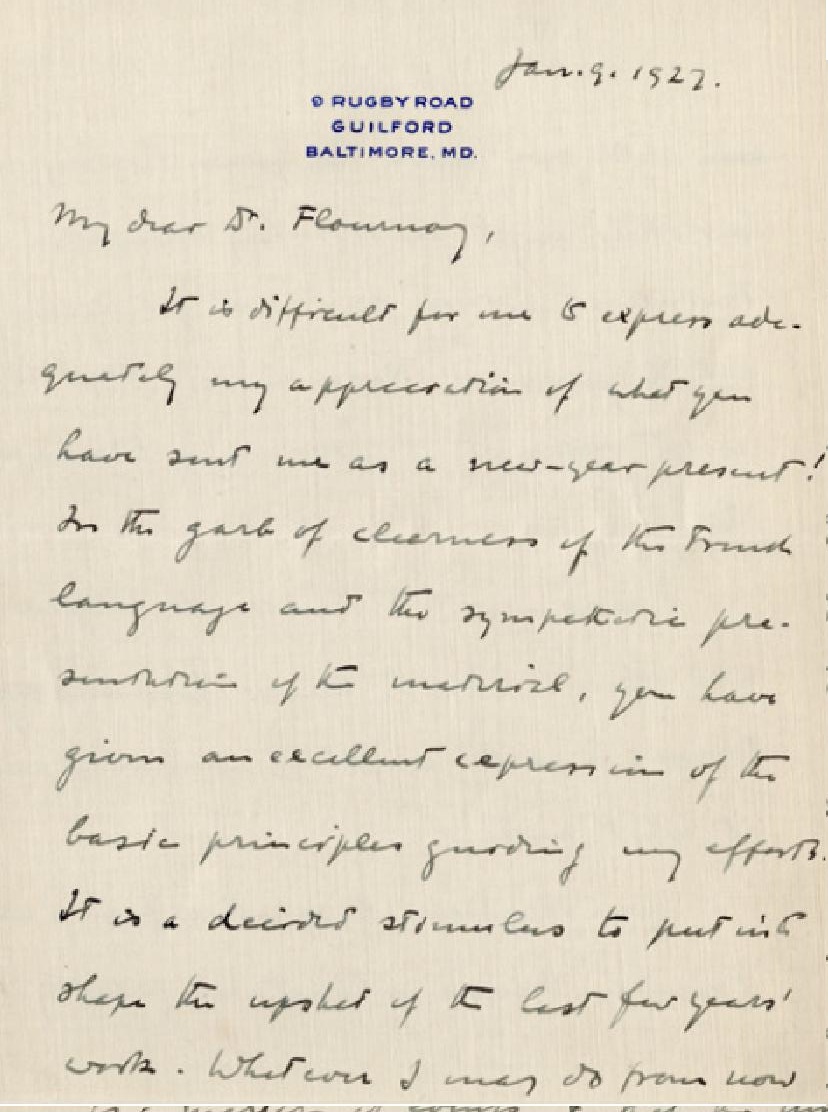 Jan. 9. 1927.
9 RUGBY ROAD
GUILFORD
BALTIMORE, MD.
My dear Dr. Flournoy,
It is difficult for me to express ade-
quately my appreciation of what you
have sent me as a new-year present!
In the garb of clearness of the French
language and the sympathetic pre-
sentation of the material, you have
given an excellent expression of the
basic principles guiding my efforts.
It is a decided stimulus to put into
shape the upshot of the last few years'
work. Whatever I may do from now